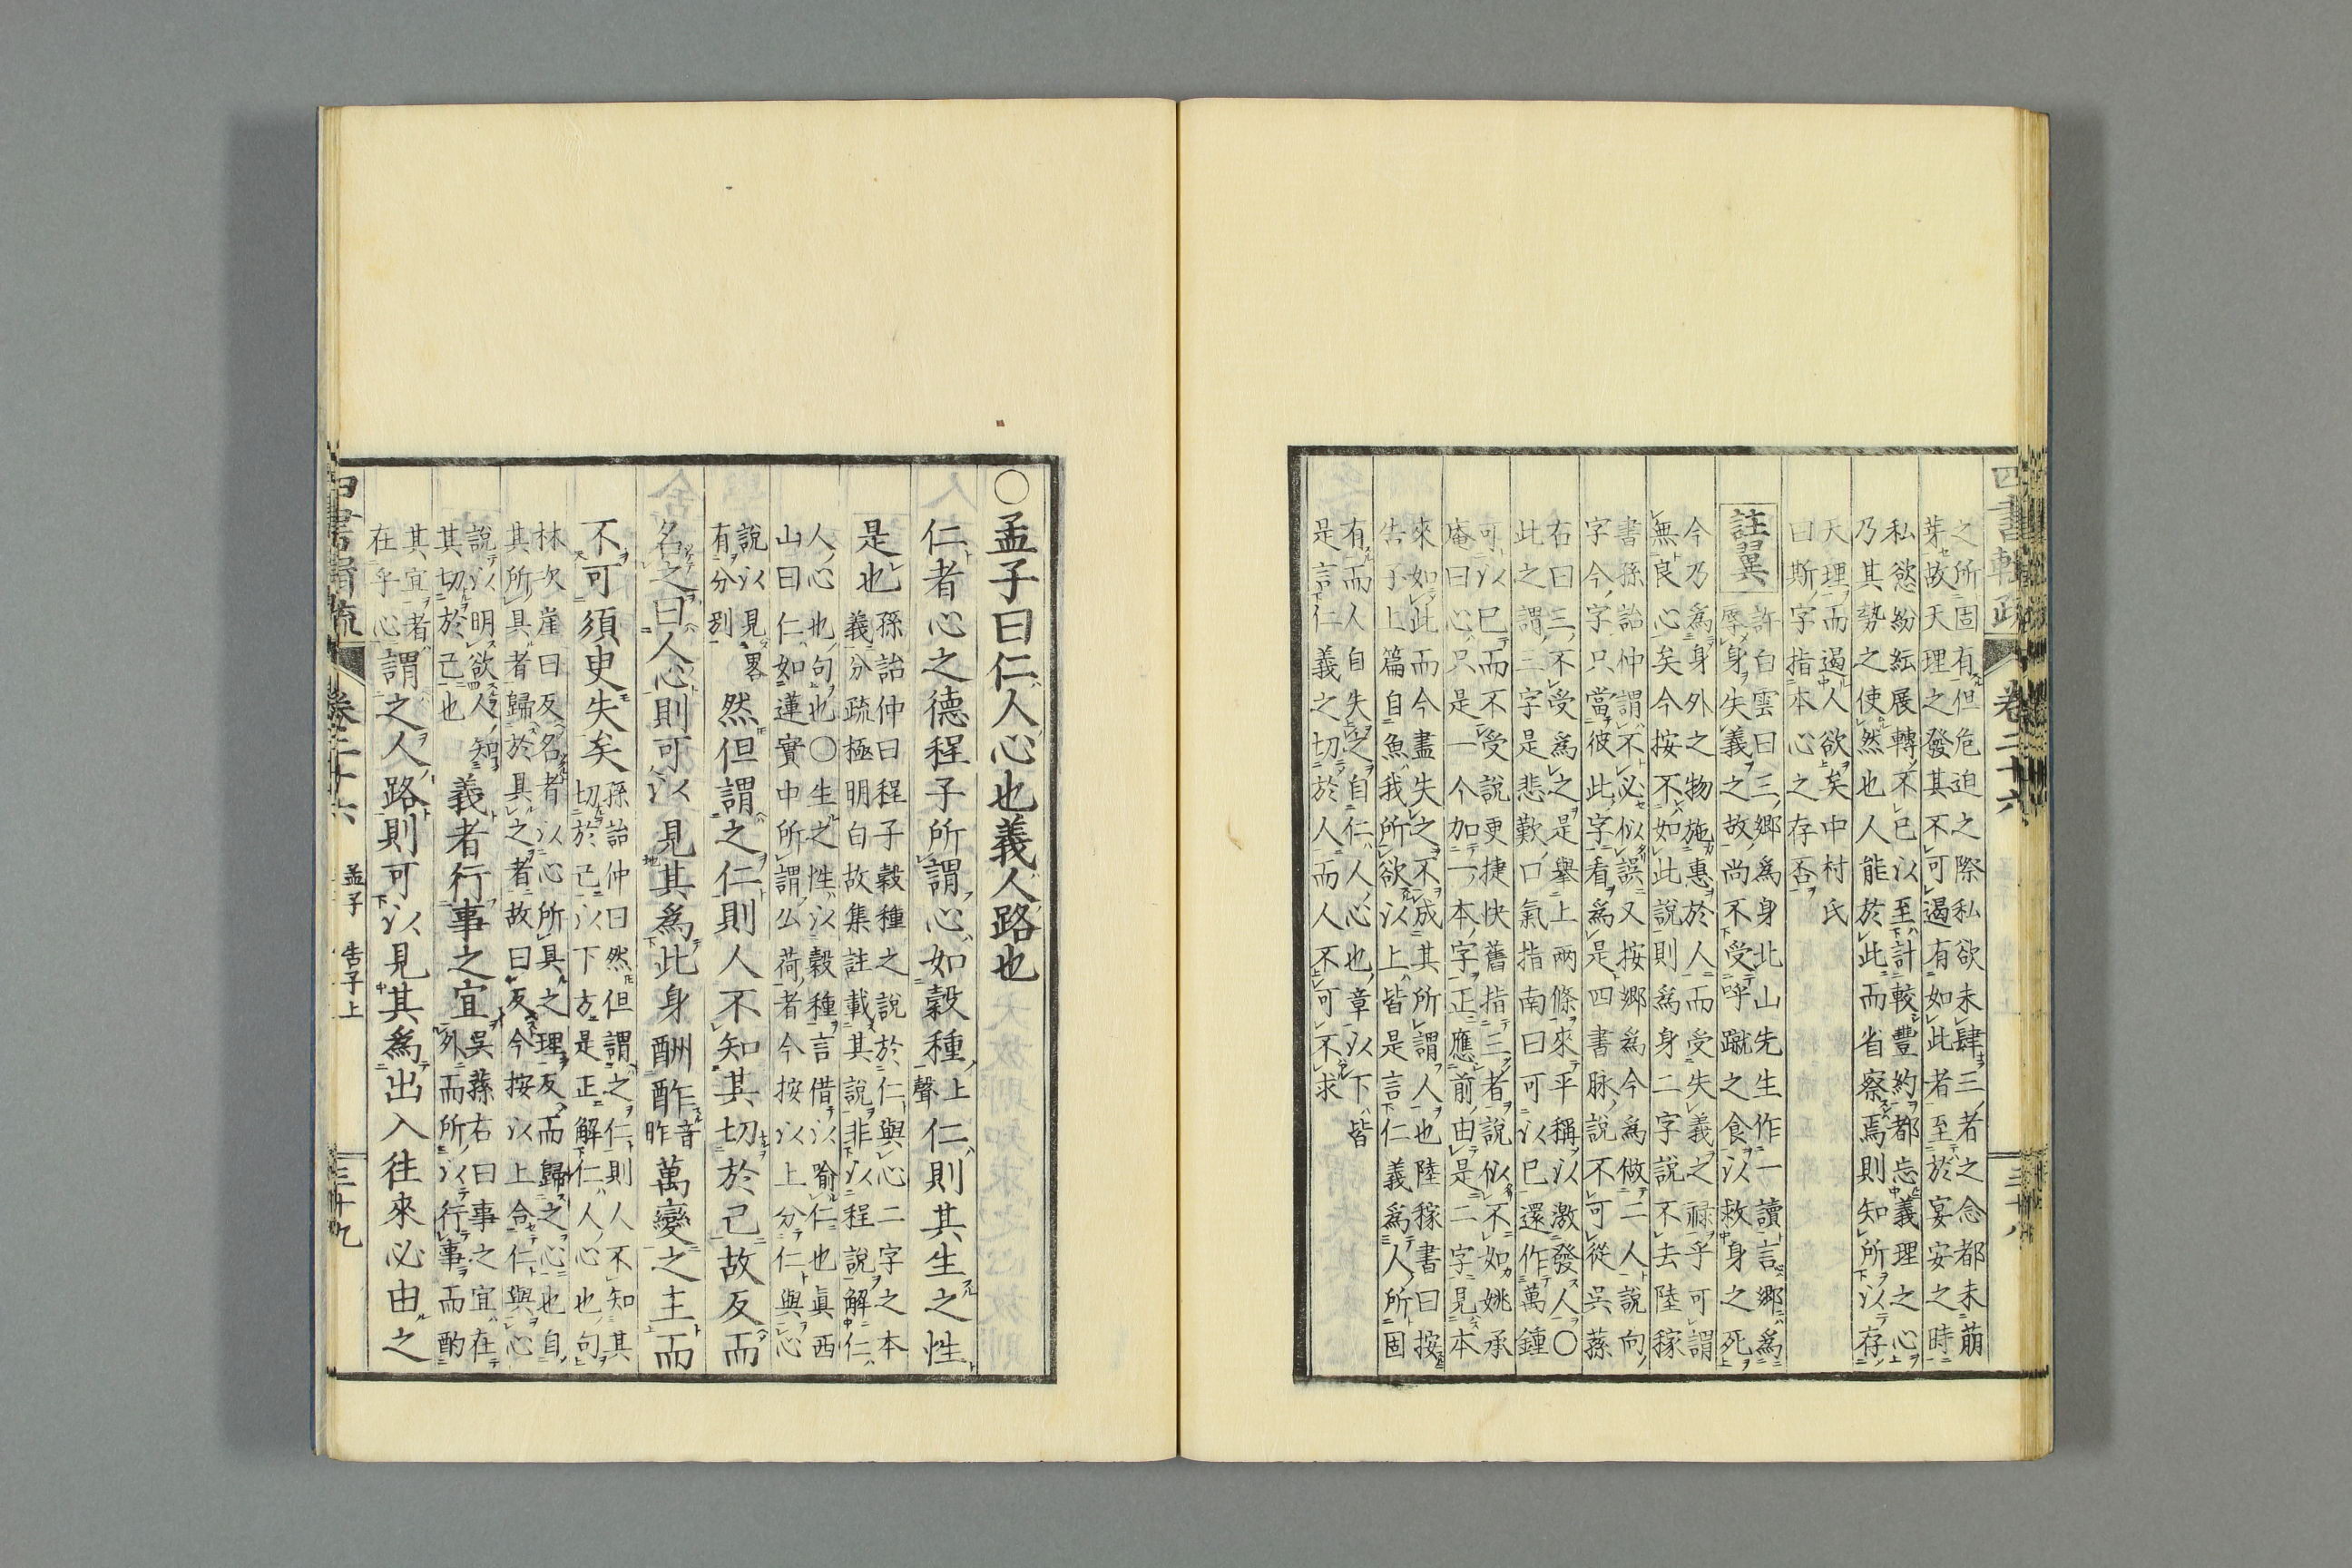 四書輯疏 卷二十六 三十八
之所固有但危迫之際私欲未肆三者之念都未萠
芽故天理之發其不可遏有如此者至於宴安之時
私慾紛紜展轉不已以至計較豐約都忘義理之心
乃其勢之使然也人能於此而省察焉則知所以存
天理而遏人欲矣中村氏
曰斯字指本心之存否
註翼
許白雲曰三鄉爲身北山先生作一讀言鄉爲
辱身失義之故尚不受呼蹴之食以救身之死
今乃爲身外之物施惠於人而受失義之祿乎可謂
無良心矣今按不如此說則爲身二字說不去陸稼
書孫詒仲謂不必似誤又按鄉爲今爲做二人說向
字今字只當彼此字看爲是四書脉說不可從吳蓀
右曰三不受爲之是擧上兩條來平稱以激發人〇
此之謂三字是悲歎口氣指南曰可以已還作萬鍾
可以已而不受說更捷快舊指三者說似不如姚承
庵曰心只是一今加一本字正應前由是二字見本
來如此而今盡失之不成其所謂人也陸稼書曰按
告子上篇自魚我所欲以上皆是言仁義爲人所固
有而人自失之自仁人心也章以下皆
是言仁義之切於人而人不可不求
〇孟子曰仁人心也義人路也
仁者心之德程子所謂心如穀種上聲仁則其生之性
是也
孫詒仲曰程子穀種之說於仁與心二字之本
義分疏極明白故集註載其說非以程說解仁
人心也句也〇生之性以穀種言借以喻仁也眞西
山曰仁如蓮實中所謂么荷者今按以上分仁與心
說以見畧
有分別
然但謂之仁則人不知其切於己故反而
名之曰人心則可以見其爲此身酬酢音昨萬變之主而
不可須臾失矣
孫詒仲曰然但謂之仁則人不知其
切於己以下方是正解仁人心也句
林次崖曰反名者以心所具之理反而歸之心也自
其所具者歸於具之者故曰反今按以上合仁與心
說以明欲人知
其切於己也
義者行事之宜
吳蓀右曰事之宜在
外而所以行事而酌
其宜者
在乎心
謂之人路則可以見其爲出入往來必由之
卷二十六 孟子 告子上 三十九